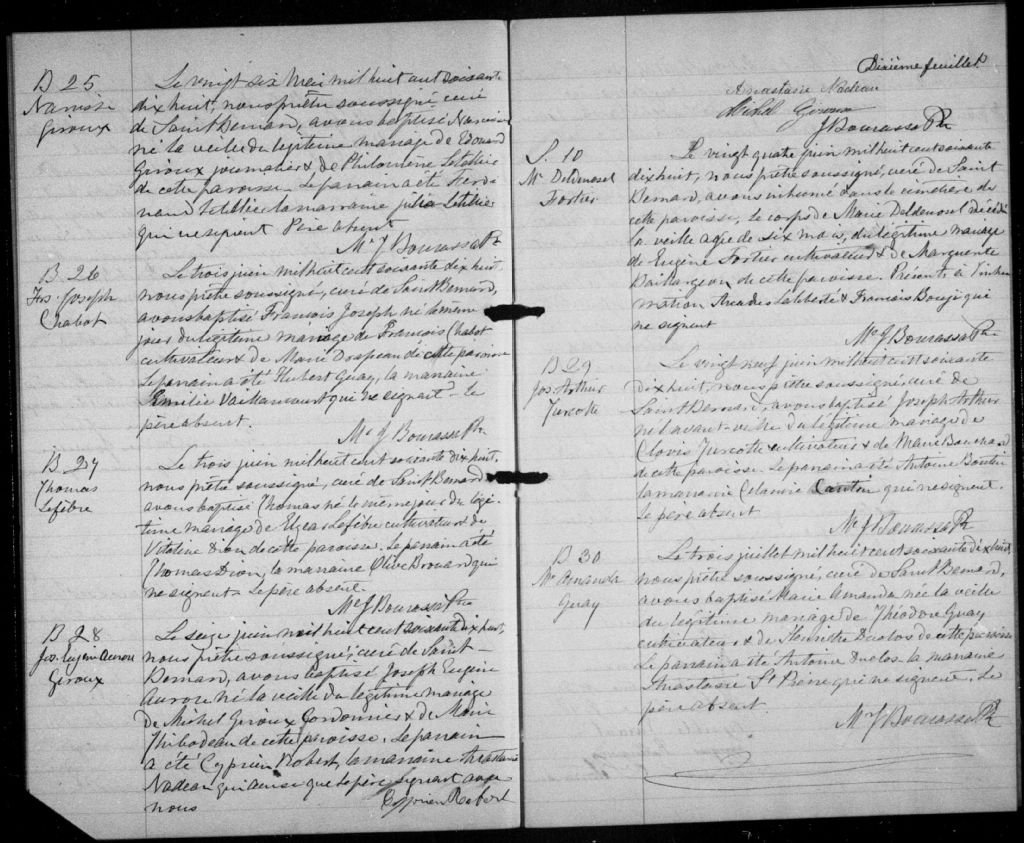 B 25
Narcisse
Giroux
Le vingt six Mai mil huit cent soixante
dix huit, nous prêtre soussigné, curé
de Saint Bernard, avons baptisé Narcisse
né la veille du légitime mariage de Edouard
Giroux journalier & de Philomène Letellier
de cette paroisse. Le parrain a été Ferdi
nand Letellier la marraine Julia Letellier
qui ne signent Père absent
Mc J Bourassa Ptr
B 26
Frs. Joseph
Chabot
Le trois juin mil huit cent soixante dix huit
nous prêtre soussigné, curé de Saint Bernard,
avons baptisé Francois Joseph né le même
jour du légitime mariage de François Chabot
cultivateur & de Marie Drapeau de cette paroisse
Le parrain a été Hubert Guay, la marraine
Emilie Vaillancourt qui ne signent le
père absent.
Mc J Bourassa Ptr
B 27
Thomas
Lefebre
Le trois juin mil huit cent soixante dix huit,
nous prêtre soussigné, curé de Saint Bernard
avons baptisé Thomas né le même jour du légi-
time mariage de Elzear Lefebre cultivateur & de
Vitaline Dion de cette paroisse. Le parrain a été
Thomas Dion, la marraine Olive Brouard qui
ne signent Le père absent.
Mc J Bourassa Ptr
B 28
Jos. Eugène Aurore
Giroux
Le seize juin mil huit cent soixante dix huit,
nous prêtre soussigné, curé de Saint-
Bernard, avons baptisé Joseph Eugène
Aurore né la veille du légitime mariage
de Michel Giroux Cordonnier & de Marie
Thibodeau de cette paroisse. Le parrain
a été Cyprien Robert, la marraine Anastasie
Nadeau qui ainsi que le père signent avec
nous
Cyprien Robert
Dixième feuillet
Anastasie Nadeau
Michel Giroux
J Bourassa Ptr
S. 10
Me Deldemosel
Fortier
Le vingt quatre juin mil huit cent soixante
dix huit, nous prêtre soussigné, curé de Saint
Bernard, avons inhumé dans le cimetière de
cette paroisse, le corps de Marie décédée
la veille agée de six mois, du légitime mariage
de Eugène Fortier cultivateur & de Marguerite
Baillargeon de cette paroisse. Présents à l'inhu
mation Arcade Labbeté & Francois Bougi qui
ne signent
Mc J Bourassa Ptr
B 29
Jos. Arthur
Turcotte
Le vingt neuf juin mil huit cent soixante
dix huit, nous prêtre soussigné, curé de
Saint Bernard, avons baptisé Joseph Arthur
né l'avant-veille du légitime mariage de
Clovis Turcotte cultivateur & de Marie Bouchard
de cette paroisse. Le parrain a été Antoine Boutin
la marraine Celanire Cantin qui ne signent.
Le père absent
Mc J Bourassa Ptr
B 30
Me Amanda
Guay
Le trois juillet mil huit cent soixante dix huit,
nous prêtre soussigné, curé de Saint Bernard,
avons baptisé Marie Amanda née la veille
du légitime mariage de Théodore Guay
cultivateur & de Henriette Duclos de cette paroisse
Le parrain a été Antoine Duclos la marraine
Anastasie St Pierre qui ne signent. Le
père absent
Mc J Bourassa Ptr